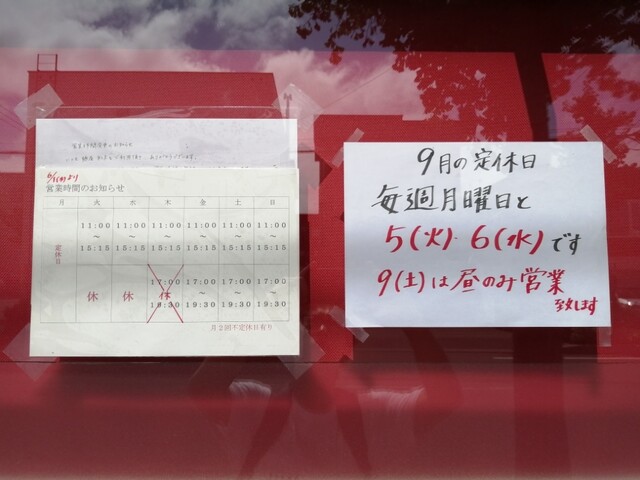 営業時間のお知らせ
月 火 水 木 金 土 日
11:00 11:00 11:00 11:00 11:00 11:00
～ ～ ～ ～ ～ ～
15:15 15:15 15:15 15:15 15:15 15:15
定休日
17:00 17:00 17:00 17:00
休 休 休 ～ ～ ～
19:30 19:30 19:30 19:30
月2回不定休日有り
9月の定休日
毎週月曜日と
5(火)・6(水)です
9(土)は昼のみ営業
致します